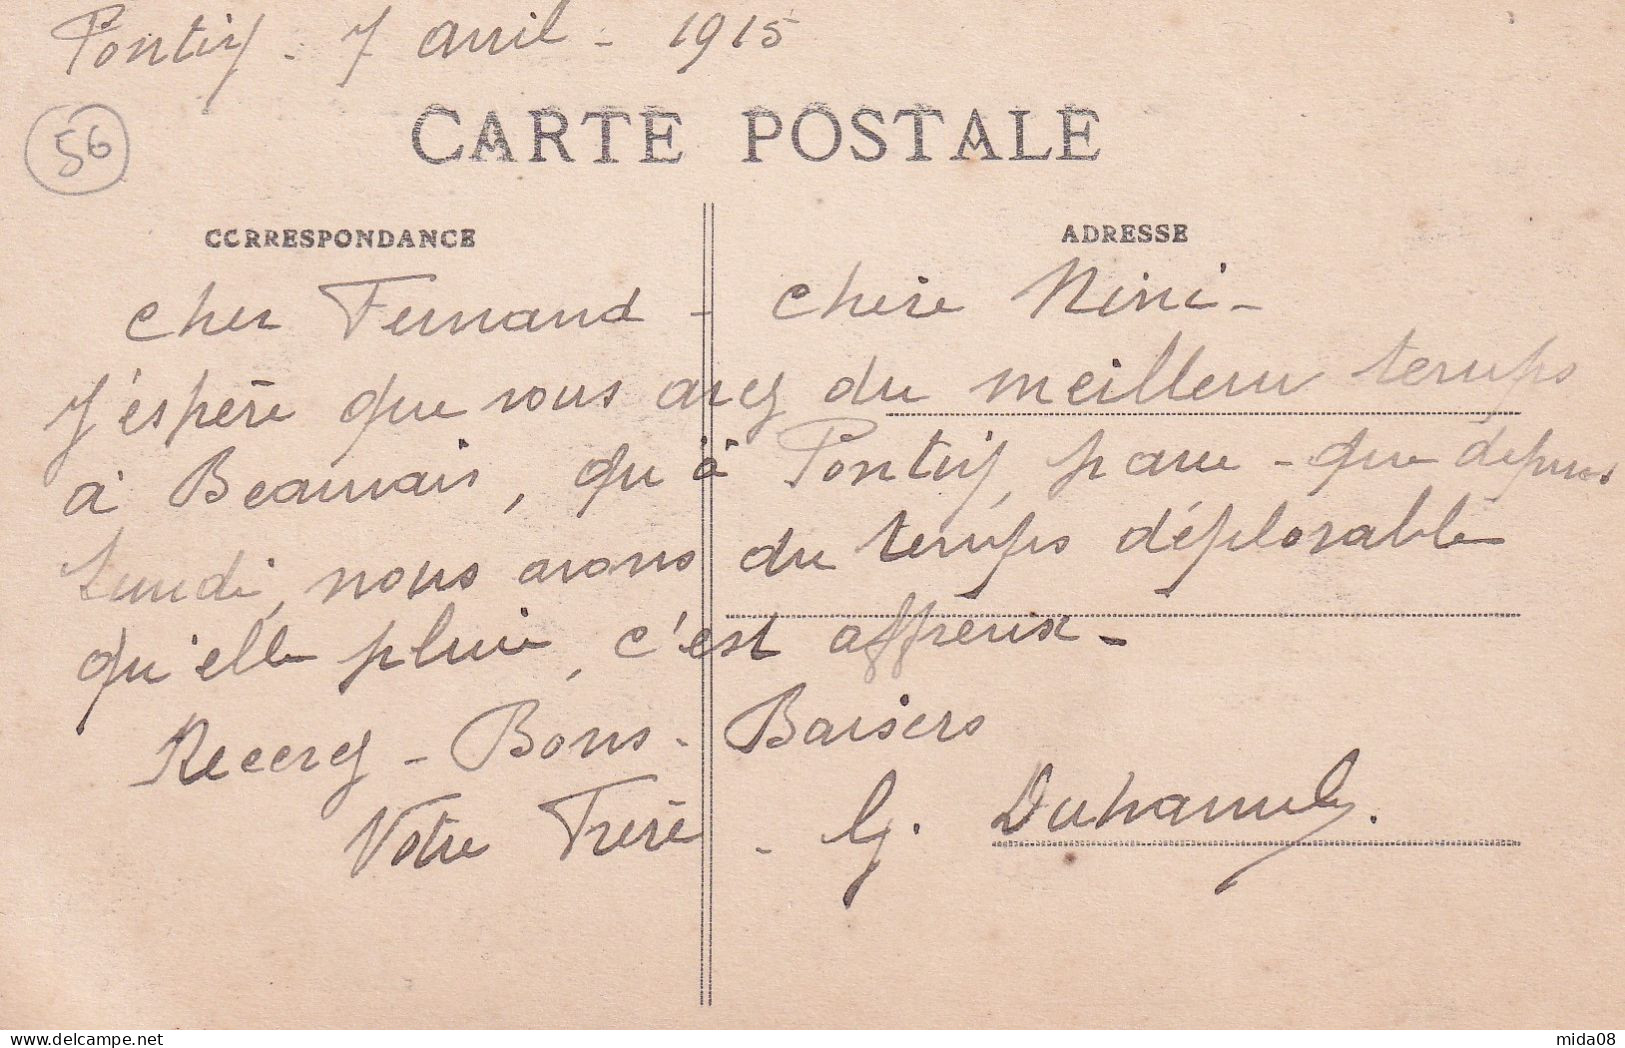 Pontivy - 7 avril - 1915
56
CARTE POSTALE
CORRESPONDANCE
ADRESSE
Cher Fernand - Chère Nini -
J'espère que vous avez du meilleur temps
à Beauvais, qu'à Pontivy, parce - que depuis
Lundi, nous avons du temps déplorable
qu'elle pluie, c'est affreux -
Recevez - Bons - Baisers
Votre Frère - G. Duhamel.
mida08